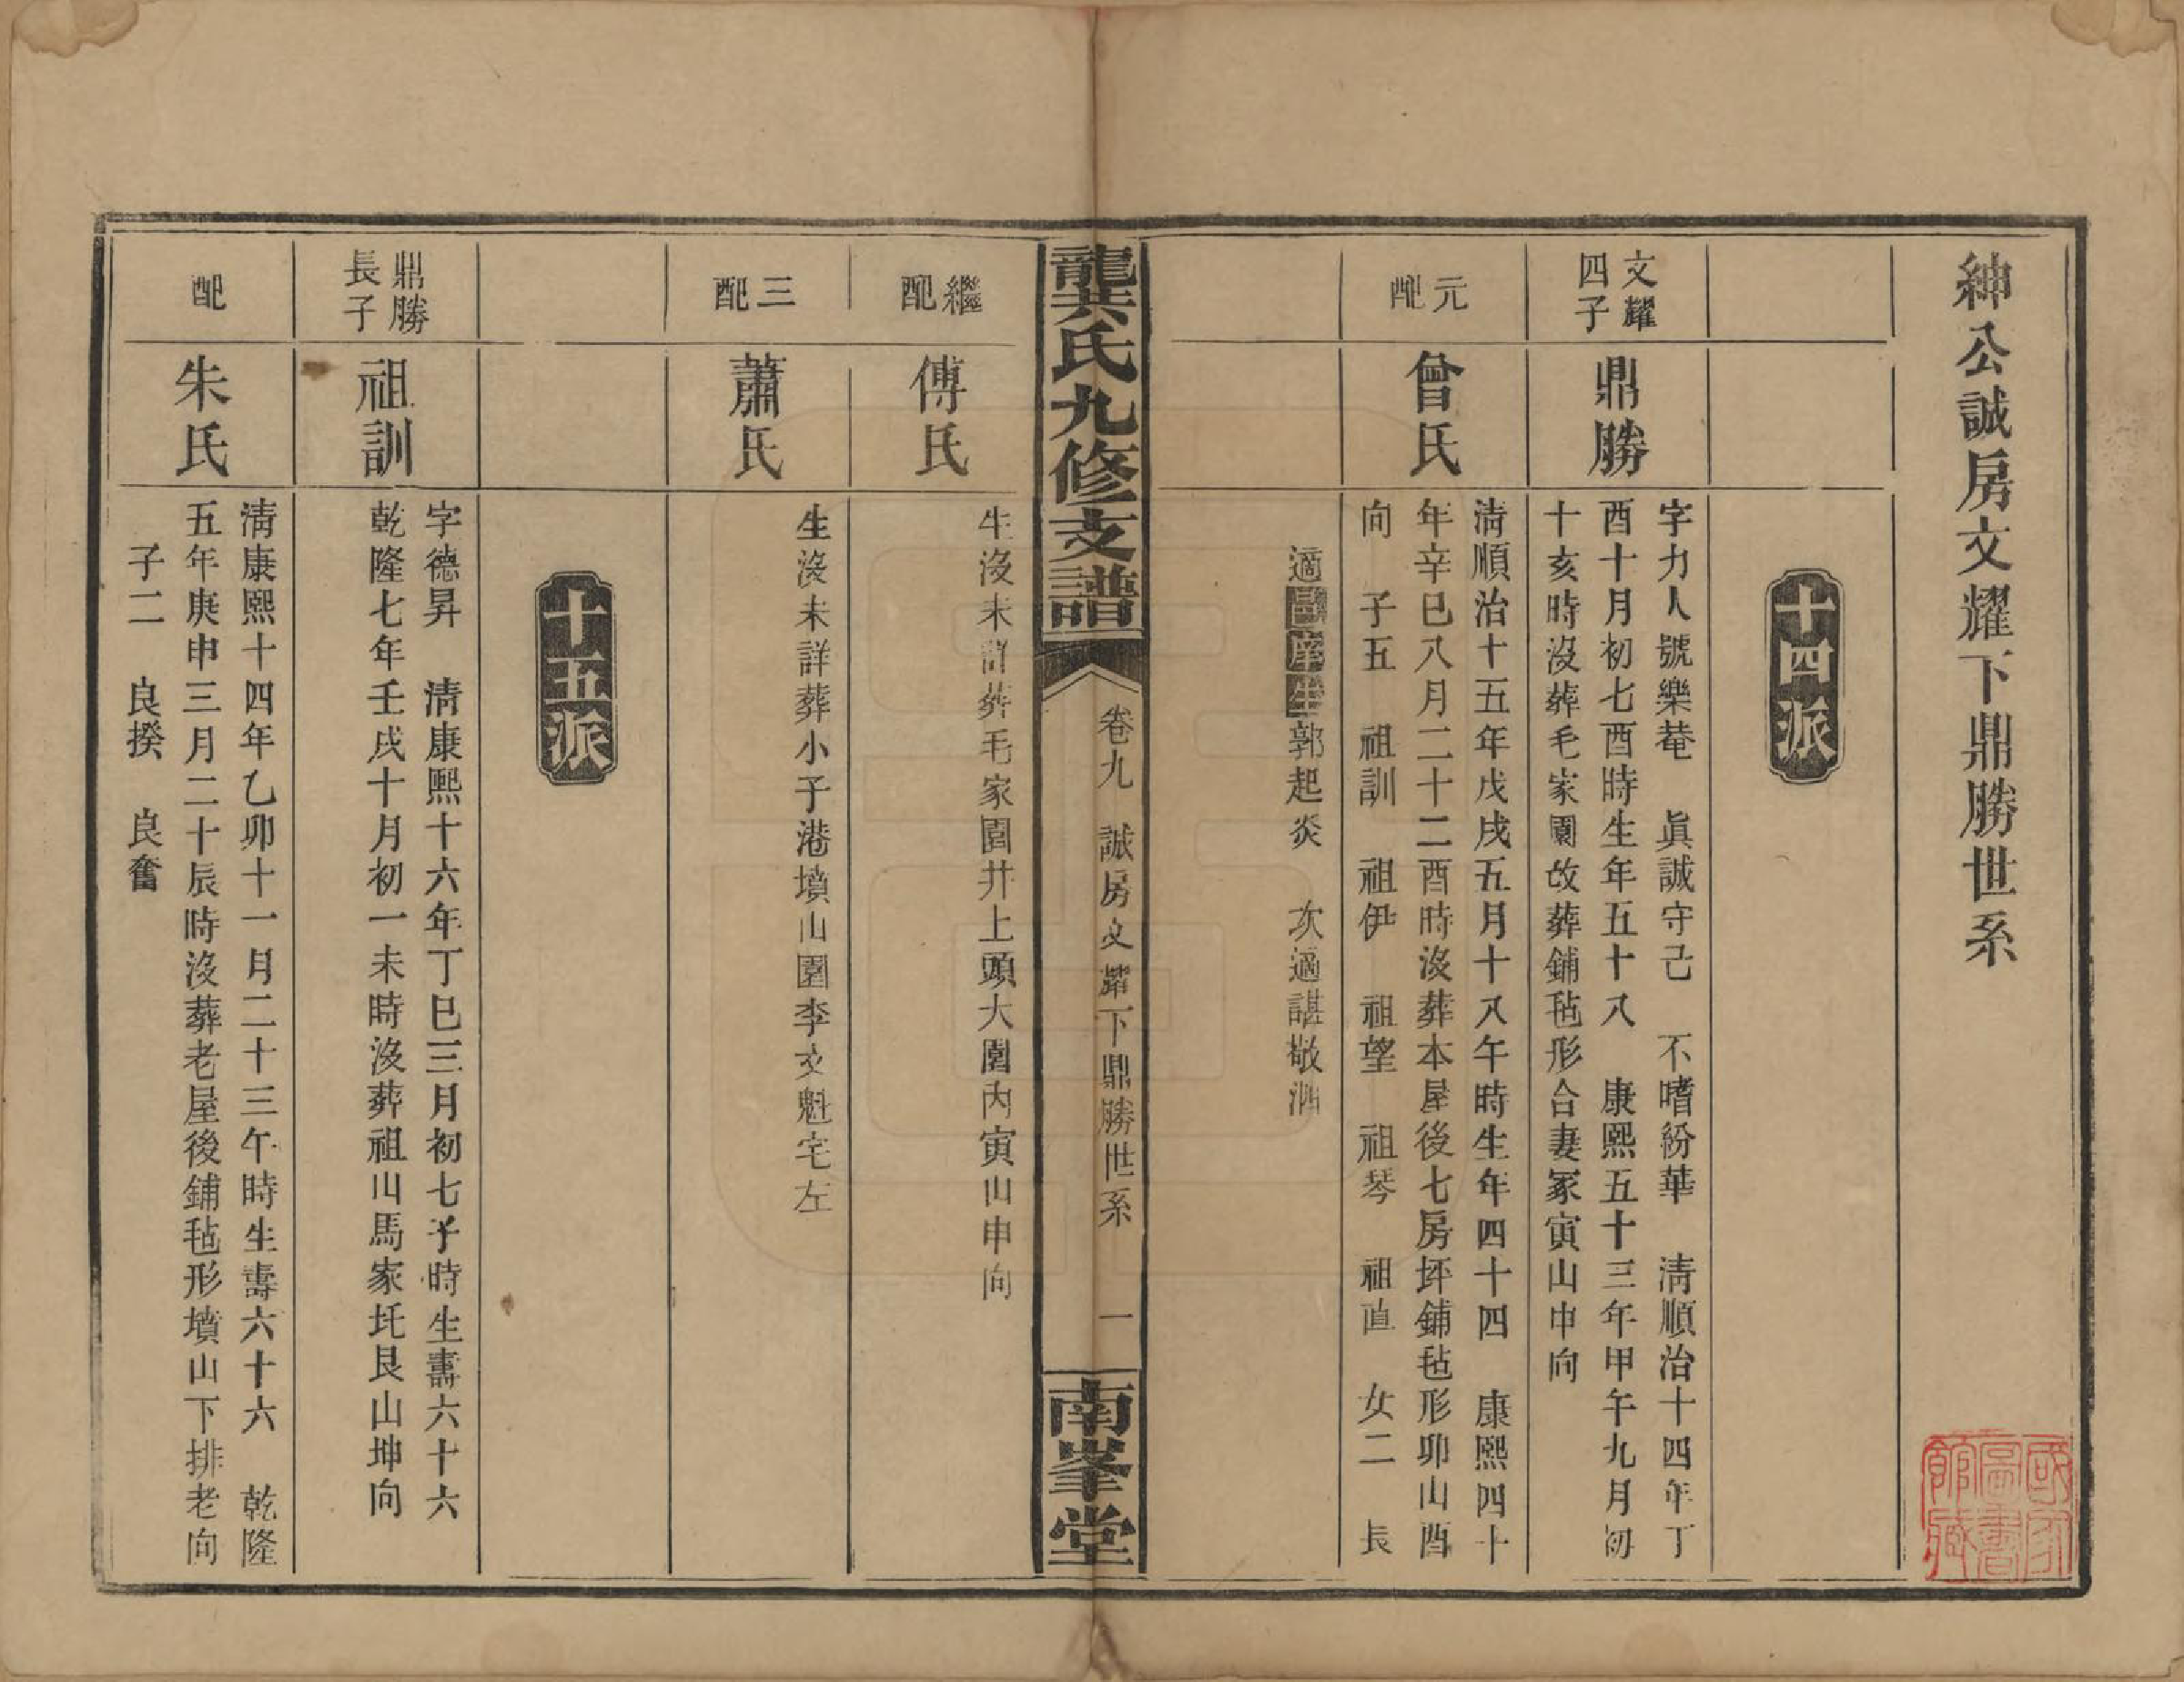 紳公誠房文耀下鼎勝世系
十四派
文耀
四子
鼎勝
字力人號樂菴　眞誠守己　不嗜紛華　淸順治十四年丁
酉十月初七酉時生年五十八　康熙五十三年甲午九月初
十亥時沒葬毛家園改葬鋪毡形合妻冢寅山申向
元配
曾氏
淸順治十五年戊戌五月十八午時生年四十四　康熙四十
年辛巳八月二十二酉時沒葬本屋後七房坪鋪毡形卯山酉
向　子五　祖訓　祖伊　祖望　祖琴　祖直　女二　長
適邑庠生郭起炎　次適諶敬泗
龔氏九修支譜
卷九　誠房文耀下鼎勝世系　一
南峯堂
繼配
傅氏
生沒未詳葬毛家園井上頭大園內寅山申向
三配
蕭氏
生沒未詳葬小子港墳山園李文魁宅左
十五派
鼎勝
長子
祖訓
字德昇　淸康熙十六年丁巳三月初七子時生壽六十六
乾隆七年壬戌十月初一未時沒葬祖山馬家圫艮山坤向
配
朱氏
淸康熙十四年乙卯十一月二十三午時生壽六十六　乾隆
五年庚申三月二十辰時沒葬老屋後鋪毡形墳山下排老向
子二　良揆　良奮
國家
圖書
館藏